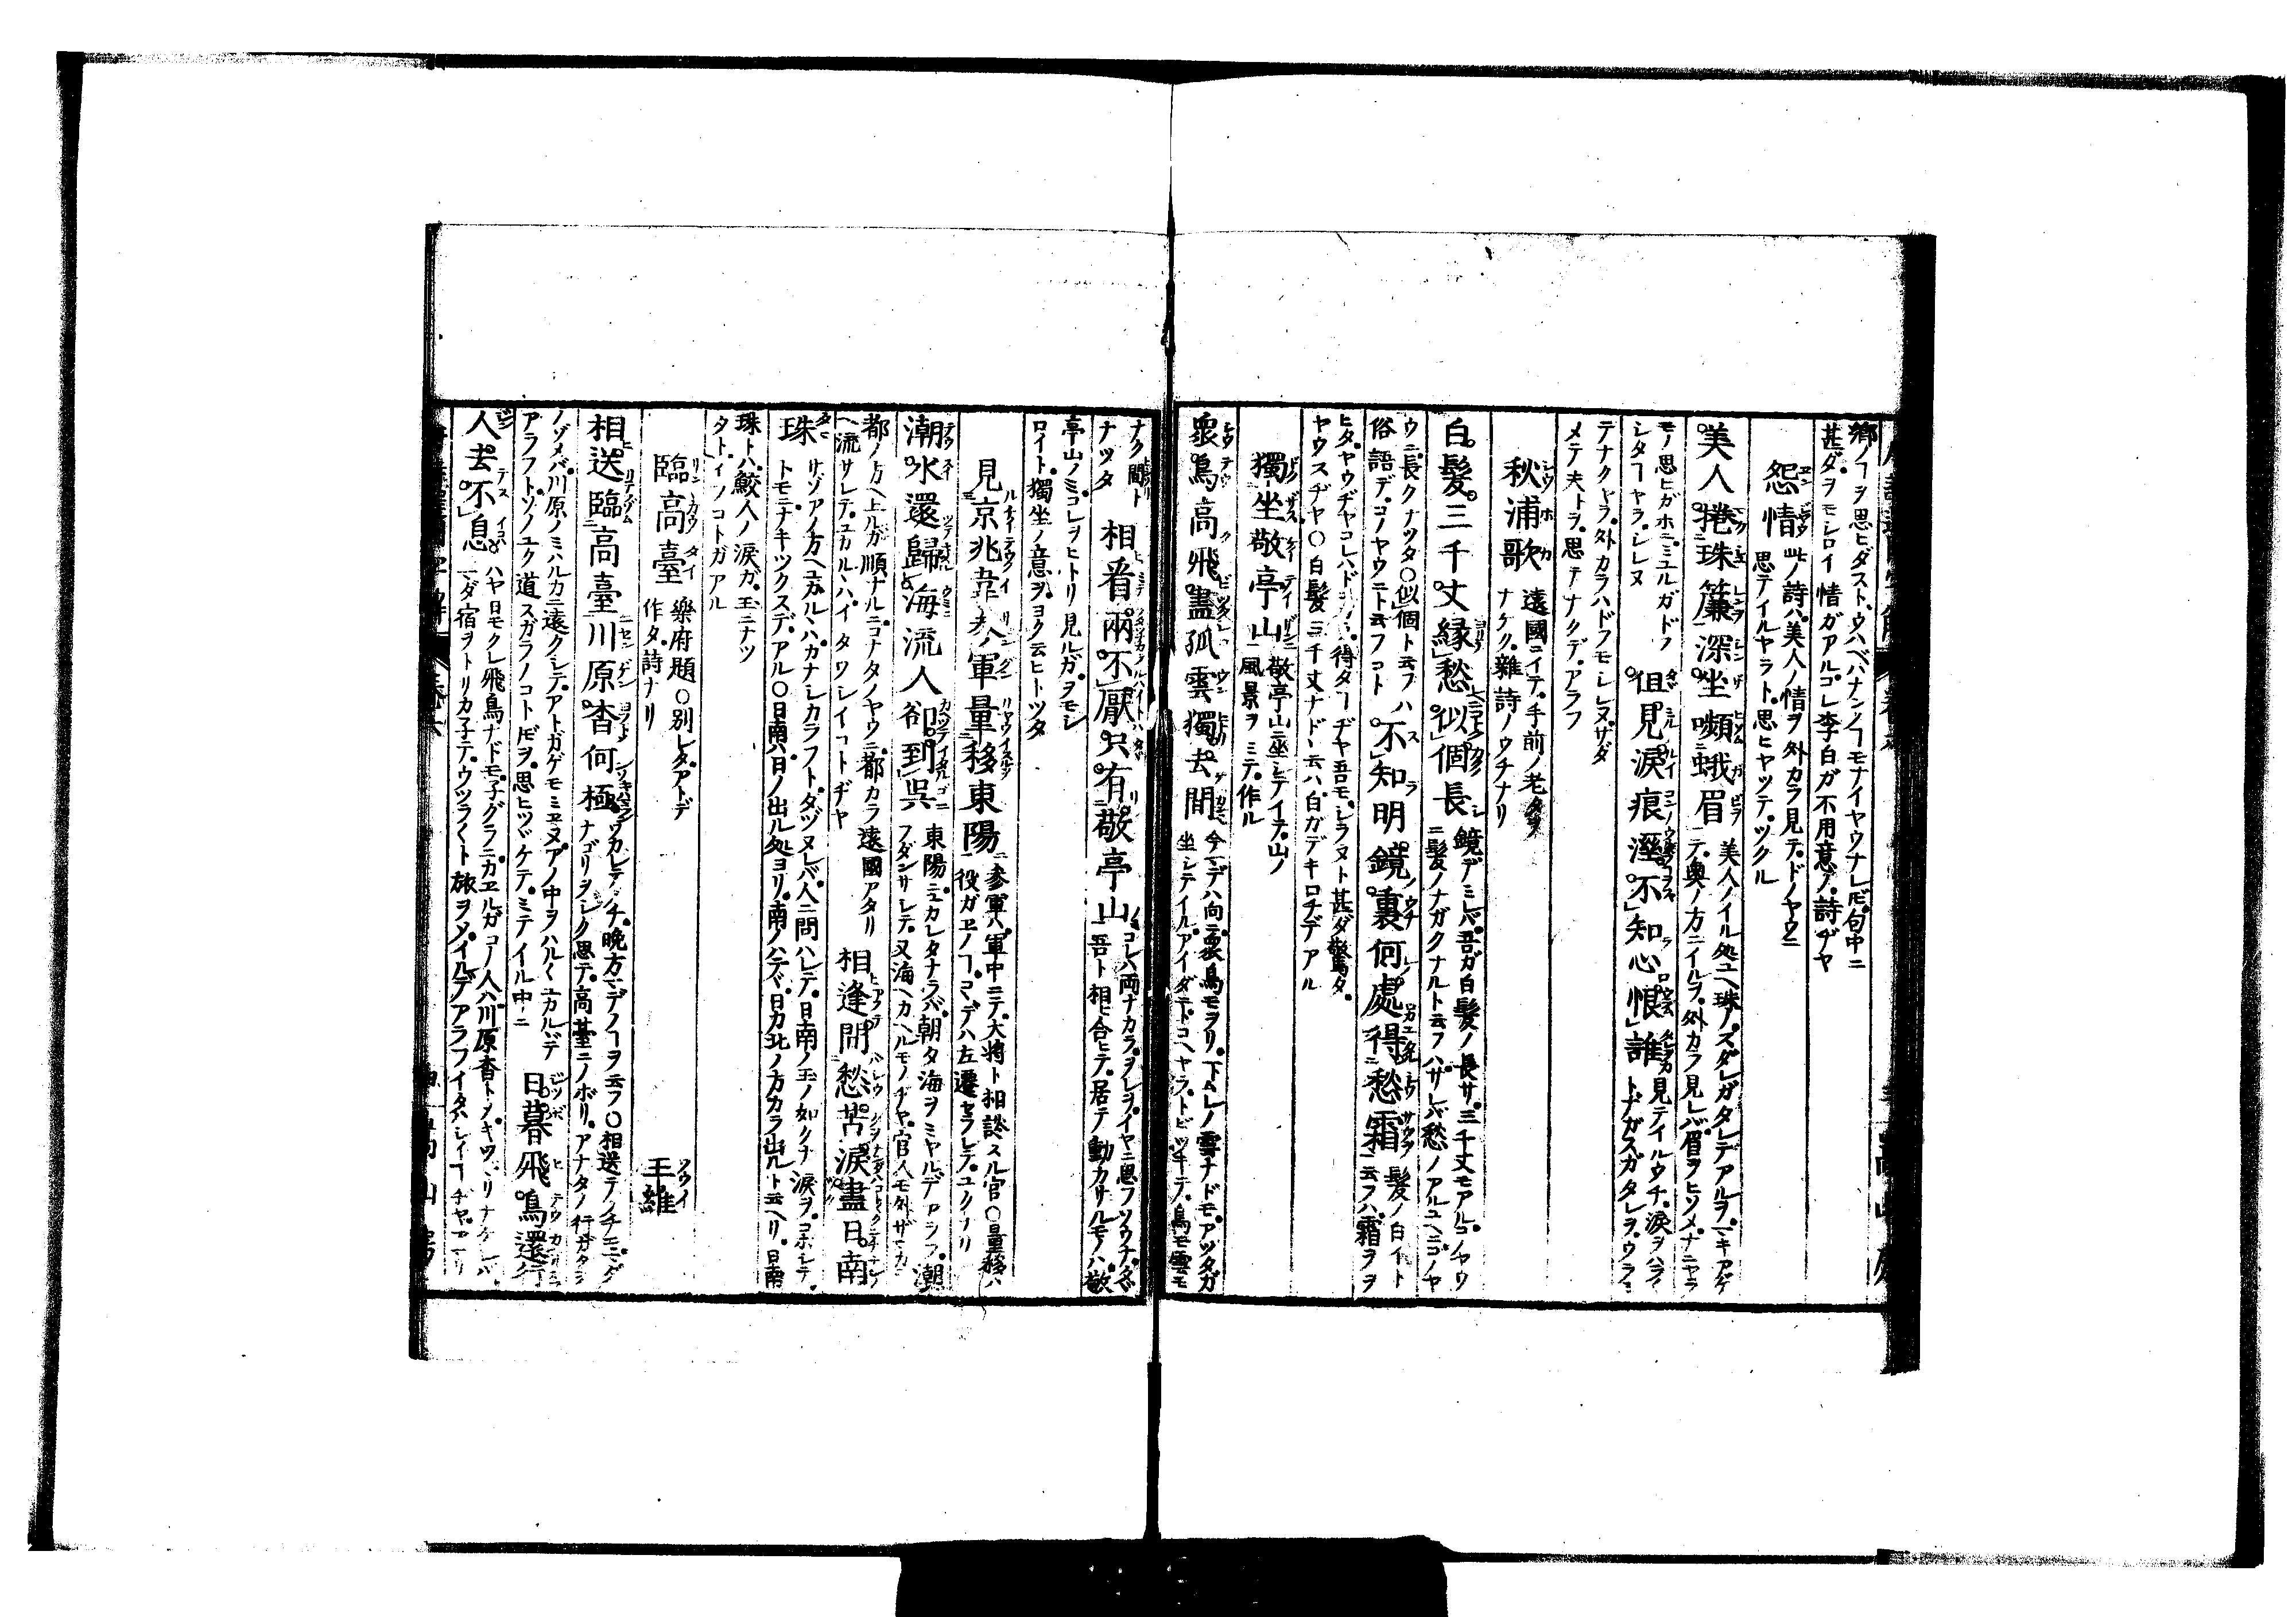 鄉ノヿヲ思ヒダスト、ウハベハナンノヿモナイヤウナレ𪜈、句中ニ
甚ダヲモシロイ情ガアル、コレ李白ガ不用意ノ詩ヂヤ
怨情 此ノ詩ハ、美人ノ情ヲ外カラ見テ、ドノヤウニ
思テイルヤラト、思ヒヤツテ、ツクル
美人捲珠簾深坐嚬蛾眉 美人ノイル処ユヘ珠ノスダレガタレテアルヲ、マキアゲ
テ、奥ノ方ニイルヲ、外カラ見レバ、眉ヲヒソメ、ナニヤラ
モノ思ヒガホニミユルガ、ドフ
シタヿヤラ、シレヌ 但見淚痕溼不知心恨誰 見テイルウチ、淚ヲハラ〱
ト、ナガスガ、タレヲ、ウラミ
テナクヤラ、外カラハドフモシレヌ、サダ
メテ夫トヲ、思テナクデ、アラフ
秋浦歌 遠國ニイテ、手前ノ老タヲ
ナゲク、雜詩ノウチナリ
白髮三千丈緣愁似個長 鏡デミレバ、吾ガ白髮ノ長サ、三千丈モアル、コノヤウ
ニ髮ノナガクナルト云フハ、サレバ愁ノアルユヘニ、コノヤ
ウニ、長クナツタ○似個ト云フハ
俗語デ、コノヤウニト云フコト 不知明鏡裏何處得愁霜 髮ノ白イト
云フハ、霜ヲヲ
ヒタヤウヂヤ、コレハドコデ、得タヿヂヤ、吾モシラヌト、甚ダ驚タ
ヤウスヂヤ○白髮三千丈ナド、云ハ、白ガデキロチデアル
獨坐敬亭山 敬亭山ニ坐シテイテ、山ノ
風景ヲミテ、作ル
眾鳥高飛盡孤雲獨去閒 今マデハ向ニ衆鳥モヲリ、下ムレノ雲ナドモ、アツタガ
坐シテイル、アイダニ、ドコヘヤラ、トビツキテ、鳥モ雲モ
ナク閒ト
ナツタ 相看兩不厭只有敬亭山 コレハ両ナカラ、ヲレヲ、イヤニ思フソウナ、タヾ
吾ト相ヒ合ヒテ、居テ動カサルモノハ、敬
亭山ノミ、コレヲヒトリ見ルガ、ヲモシ
ロイト、獨坐ノ意ヲ、ヨク云ヒトツタ
見京兆韋參軍量移東陽 參軍ハ、軍中ニテ、大將ト相談スル官○量移ハ
役ガエノヿ、コヽデハ左遷セラレテ、ユクナリ
潮水還歸海流人卻到吳 東陽ニユカレタナラバ、朝夕海ヲミヤルデアラフ、潮
フダンサレテ、又海ヘカヘルモノヂヤ、官人モ外ザマカラ
都ノ方ヘ上ルガ順ナルニ、コナタノヤウニ、都カラ遠國アタリ
ヘ流サレテ、ユカルヽハ、イタワシイコトヂヤ 相逢問愁苦淚盡日南
珠 サゾアノ方ヘユカルヽハ、カナシカラフト、タヅヌレバ、人ニ問ハレテ、日南ノ玉ノ如クナ淚ヲ、コボシテ
トモニナキツクスデ、アル○日南ハ、日ノ出ル処ヨリ、南ノハテデ、日カ北ノ方カラ出ルト云ヘリ、日南
珠トハ、鮫人ノ淚ガ、玉ニナツ
タト、イフコトガアル
臨高臺 樂府題○別レタアトデ
作タ、詩ナリ 王維
相送臨高臺川原杳何極 ワカレテノチ、晚方マデノヿヲ云フ○相送テノチニ、ナ
ナゴリヲシク思テ、高臺ニノボリ、アナタノ行ガタヲ
ノゾメバ、川原ノミハルカニ遠クシテ、アトガゲモミエヌ、アノ中ヲハル〱ユカルヽデ
アラフト、ソノユク道スガラノコト𪜈ヲ、思ヒツヾケテ、ミテイル中ニ 日暮飛鳥還行
人去不息 ハヤ日モクレ飛鳥ナドモ、子グラニ、カエルガ、コノ人ハ川原杳トメ、キワマリナケレバ
マダ宿ヲトリカ子テ、ウツラ〱ト旅ヲメイルデアラフ、イタハシイヿヂヤ